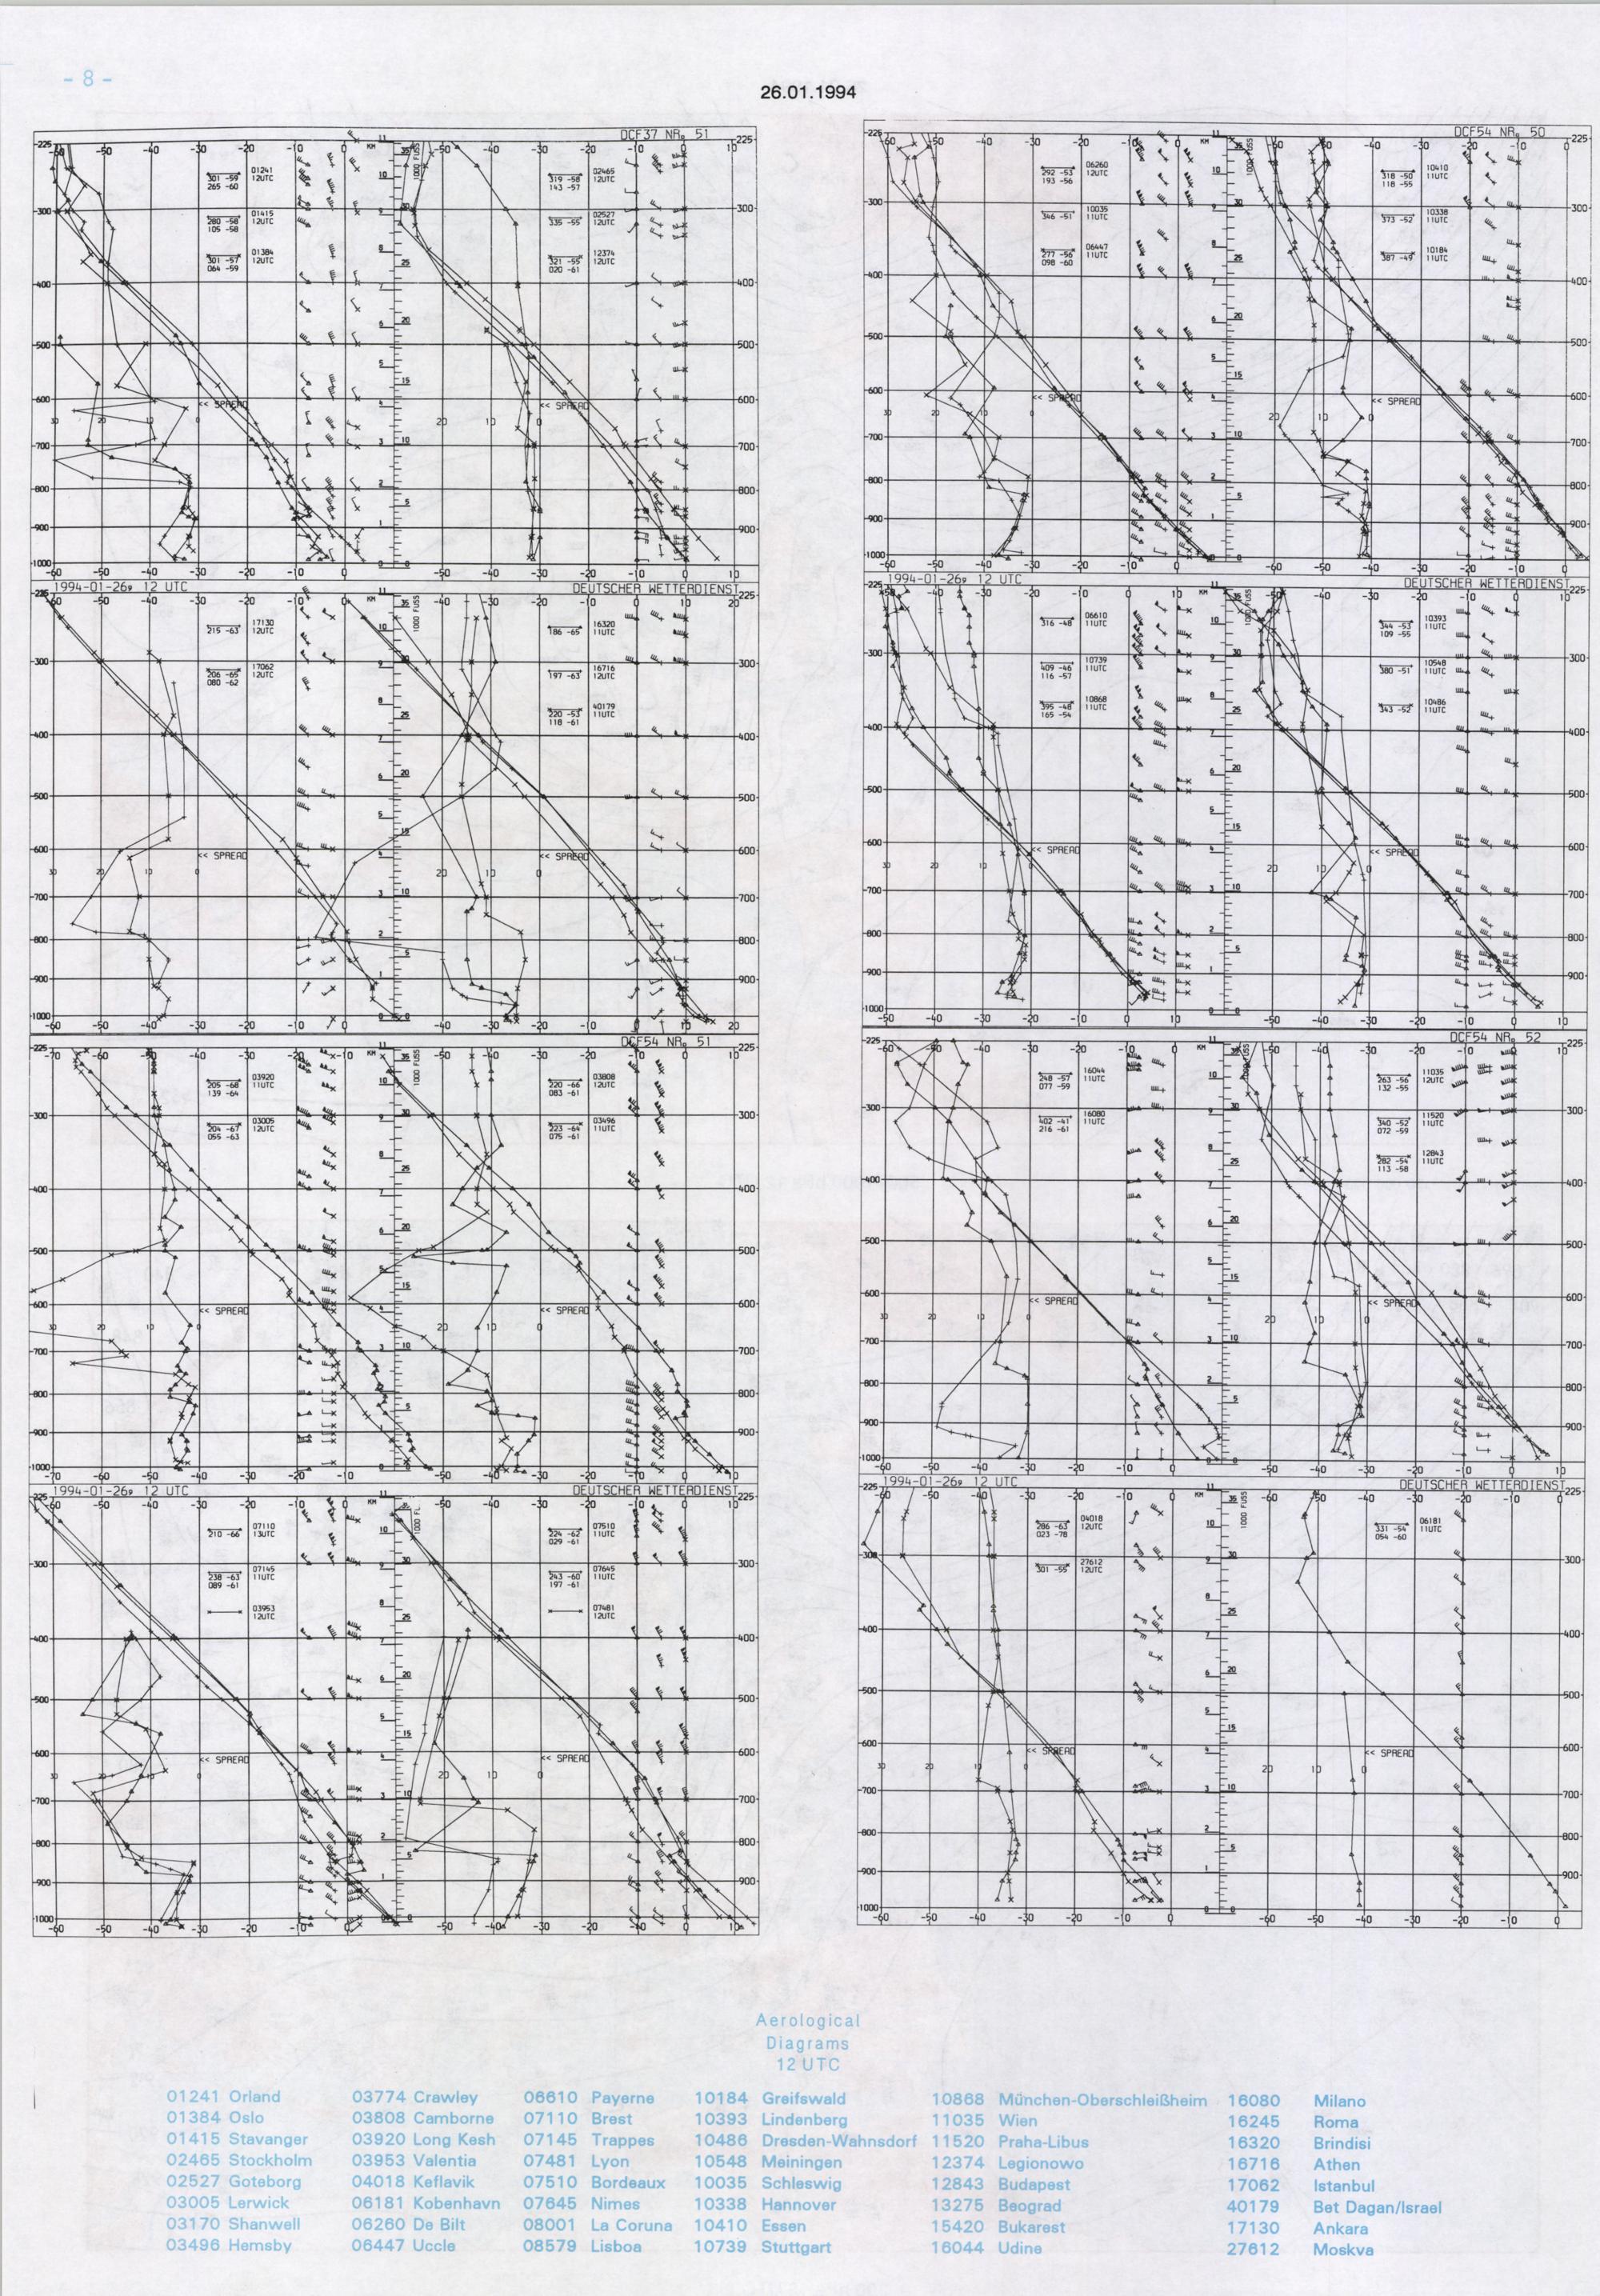 - 8 -
26.01.1994
DCF37 NR. 51
01241 12UTC
301 -59
265 -60
01415 12UTC
280 -58
105 -58
01384 12UTC
301 -57
064 -59
<< SPREAD
KM
1000 FUSS
02465 12UTC
319 -58
143 -57
02527 12UTC
335 -55
12374 12UTC
321 -55
020 -61
<< SPREAD
DCF54 NR. 50
06260 12UTC
292 -53
193 -56
10035 11UTC
346 -51
06447 11UTC
277 -56
098 -60
<< SPREAD
10410 11UTC
318 -50
118 -55
10338 11UTC
373 -52
10184 11UTC
387 -49
<< SPREAD
1994-01-26, 12 UTC
DEUTSCHER WETTERDIENST
17130 12UTC
215 -63
17062 12UTC
206 -65
080 -62
<< SPREAD
16320 11UTC
186 -65
16716 12UTC
197 -63
40179 11UTC
220 -53
118 -61
<< SPREAD
1994-01-26, 12 UTC
DEUTSCHER WETTERDIENST
06610 11UTC
316 -48
10739 11UTC
409 -46
116 -57
10868 11UTC
395 -48
165 -54
<< SPREAD
10393 11UTC
344 -53
109 -55
10548 11UTC
380 -51
10486 11UTC
343 -52
<< SPREAD
DCF54 NR. 51
03920 11UTC
205 -68
139 -64
03005 12UTC
204 -67
055 -63
<< SPREAD
03808 12UTC
220 -66
083 -61
03496 11UTC
223 -64
075 -61
<< SPREAD
DCF54 NR. 52
16044 11UTC
248 -57
077 -59
16080 11UTC
402 -41
216 -61
<< SPREAD
11035 12UTC
263 -56
132 -55
11520 11UTC
340 -52
072 -59
12843 11UTC
282 -54
113 -58
<< SPREAD
1994-01-26, 12 UTC
DEUTSCHER WETTERDIENST
07110 13UTC
210 -66
07145 11UTC
238 -63
089 -61
03953 12UTC
<< SPREAD
07510 11UTC
224 -62
029 -61
07645 11UTC
243 -60
197 -61
07481 12UTC
<< SPREAD
1994-01-26, 12 UTC
DEUTSCHER WETTERDIENST
04018 12UTC
286 -63
023 -78
27612 12UTC
301 -55
<< SPREAD
06181 11UTC
331 -54
054 -60
<< SPREAD
Aerological
Diagrams
12 UTC
01241 Orland 03774 Crawley 06610 Payerne 10184 Greifswald 10868 München-Oberschleißheim 16080 Milano
01384 Oslo 03808 Camborne 07110 Brest 10393 Lindenberg 11035 Wien 16245 Roma
01415 Stavanger 03920 Long Kesh 07145 Trappes 10486 Dresden-Wahnsdorf 11520 Praha-Libus 16320 Brindisi
02465 Stockholm 03953 Valentia 07481 Lyon 10548 Meiningen 12374 Legionowo 16716 Athen
02527 Goteborg 04018 Keflavik 07510 Bordeaux 10035 Schleswig 12843 Budapest 17062 Istanbul
03005 Lerwick 06181 Kobenhavn 07645 Nimes 10338 Hannover 13275 Beograd 40179 Bet Dagan/Israel
03170 Shanwell 06260 De Bilt 08001 La Coruna 10410 Essen 15420 Bukarest 17130 Ankara
03496 Hemsby 06447 Uccle 08579 Lisboa 10739 Stuttgart 16044 Udine 27612 Moskva